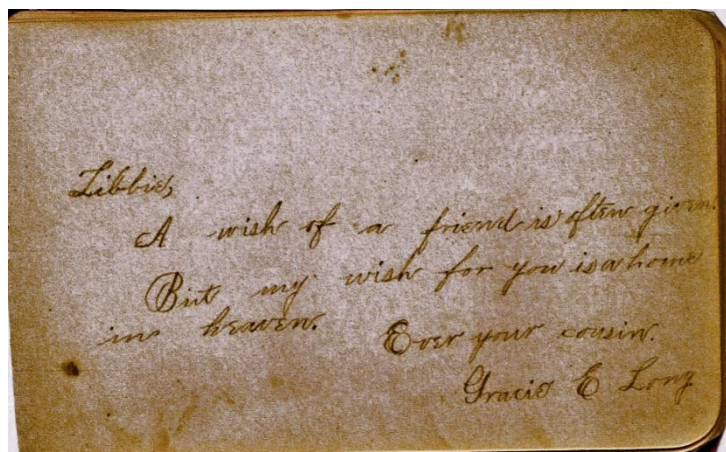 Libbie,
A wish of a friend is often given.
But my wish for you is a home
in heaven. Ever your cousin.
Gracie E Long